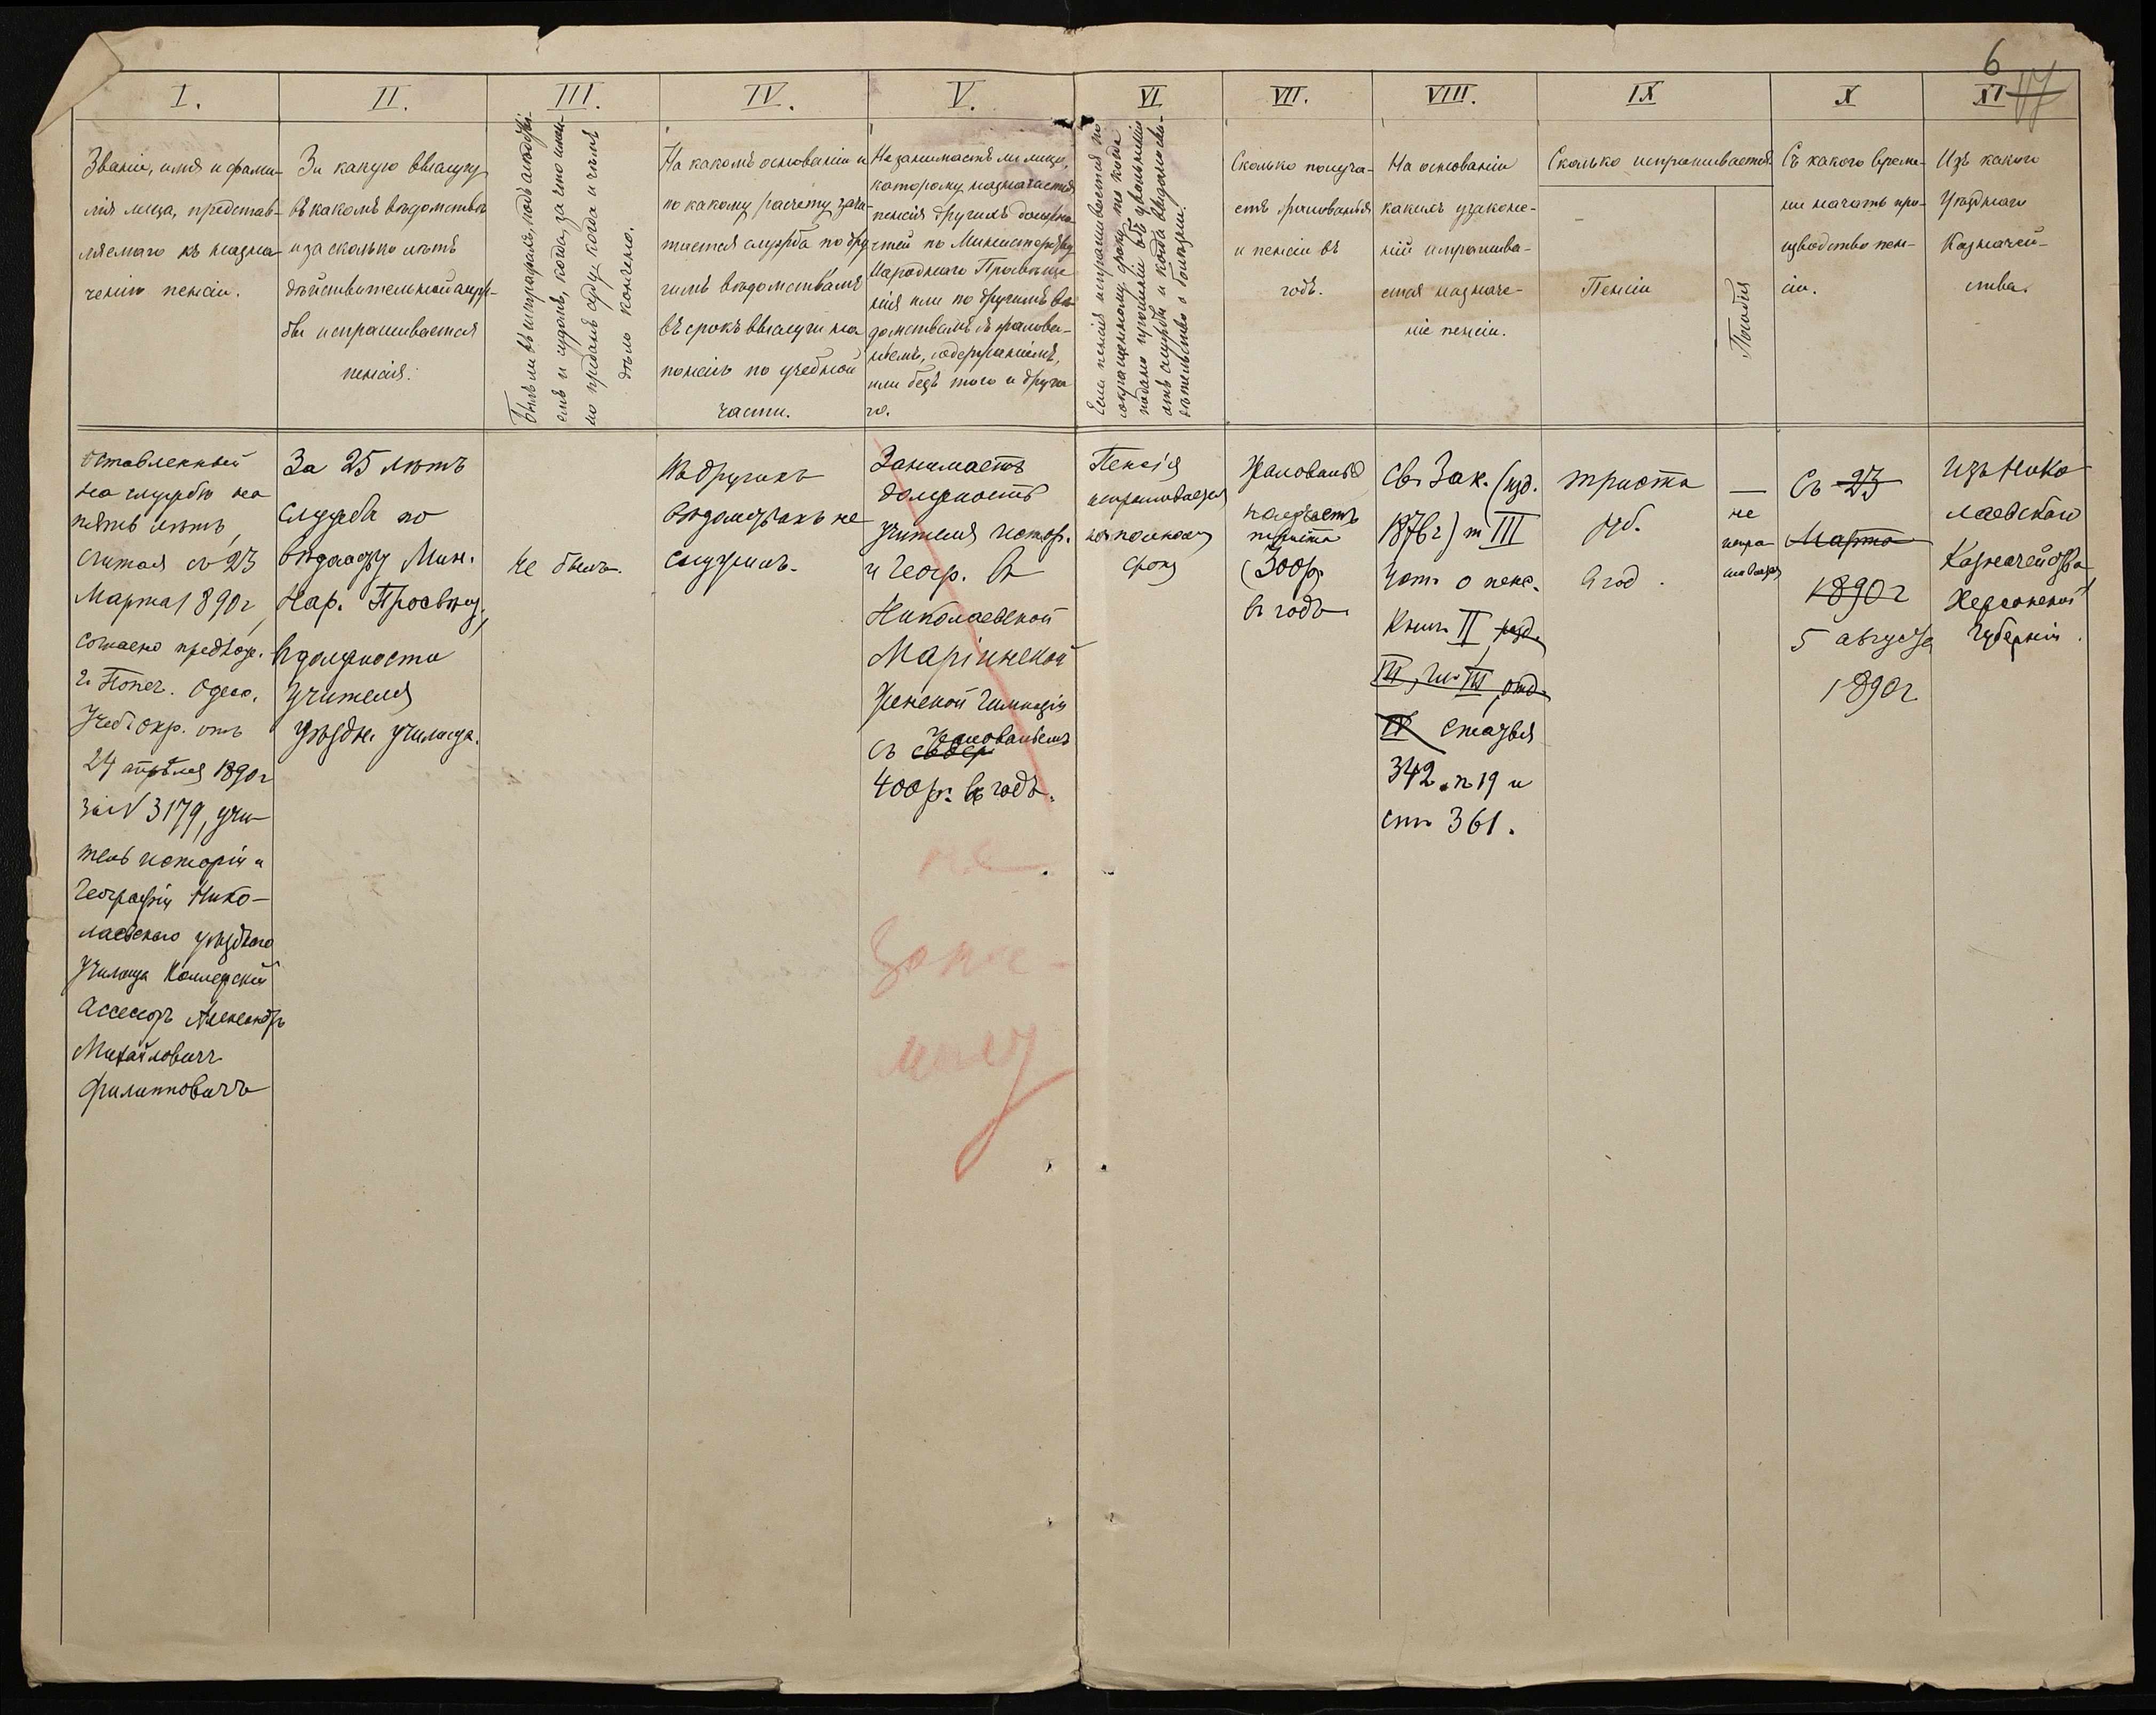 6
17
I.
Званіе, имя и фами-
лія лица, представ-
ляемаго къ назна-
ченію пенсіи.
II.
За какую выслугу
въ какомъ вѣдомствѣ
и за сколько лѣтъ
дѣйствительной служ-
бы испрашивается
пенсія.
III.
Былъ ли въ штрафахъ, подъ слѣдстві-
емъ и судомъ, когда, за что имен-
но преданъ суду, когда и чѣмъ
дѣло кончено.
IV.
На какомъ основаніи и
по какому расчету зачи-
тается служба по дру-
гимъ вѣдомствамъ
въ срокъ выслуги на
пенсію по учебной
части.
V.
Не занимаетъ ли лицо,
которому назначается
пенсія другихъ должно-
стей по Министерству
Народнаго Просвѣще
нія или по другимъ вѣ-
домствамъ съ жалова-
ньемъ, содержаніемъ,
или безъ того и друга
го.
VI.
Если пенсія испрашивается по
сокращенному сроку, то когда
подано прошеніе объ увольненіи
отъ службы и когда выдано сви-
дѣтельство о болѣзни.
VII.
Сколько получа-
етъ жалованья
и пенсіи въ
годъ.
VIII.
На основаніи
какихъ узаконе-
ній испрашива-
ется назначе-
ніе пенсіи.
IX
Сколько испрашивается
Пенсіи
Пособія
X
Съ какого време-
ни начать про-
изводство пен-
сіи.
XI
Изъ какого
Уѣзднаго
Казначей-
ства.
Оставленный
на службѣ на
пять лѣтъ,
считая съ 23
Марта 1890 г,
согласно предлож.
г. Попеч. Одесс.
Учеб. окр. отъ
24 апрѣля 1890 г
за N 3179, учи-
тель исторіи и
географіи Нико-
лаевскаго уѣзднаго
училища Коллежскій
Ассесоръ Александръ
Михайловичъ
Филипповичъ
За 25 лѣтъ
службы по
вѣдомству Мин.
Нар. Просвѣщ.,
въ должности
учителя
уѣздн. училища.
не былъ.
Въ другихъ
вѣдомствахъ не
служилъ.
Занимаетъ
должность
учителя истор.
и Геогр. въ
Николаевской
Маріинской
Женской Гимназіи
съ содер жалованьемъ
400 р. въ годъ.
не
зани-
маетъ
Пенсія
испрашивается
по полному
сроку
Жалованья
получаетъ
триста
(300 р.
въ годъ.
Св. Зак. (изд.
1876 г) т. III
Уст. о пенс.
Книг. II разд.
III, гл. III отд.
IV статья
342 п 19 и
ст. 361.
триста
руб.
въ год.
—
не
испра
шивается
Съ 23
Марта
1890 г
5 августа
1890 г.
Изъ Нико
лаевскаго
Казначейства
Херсонской
губерніи.